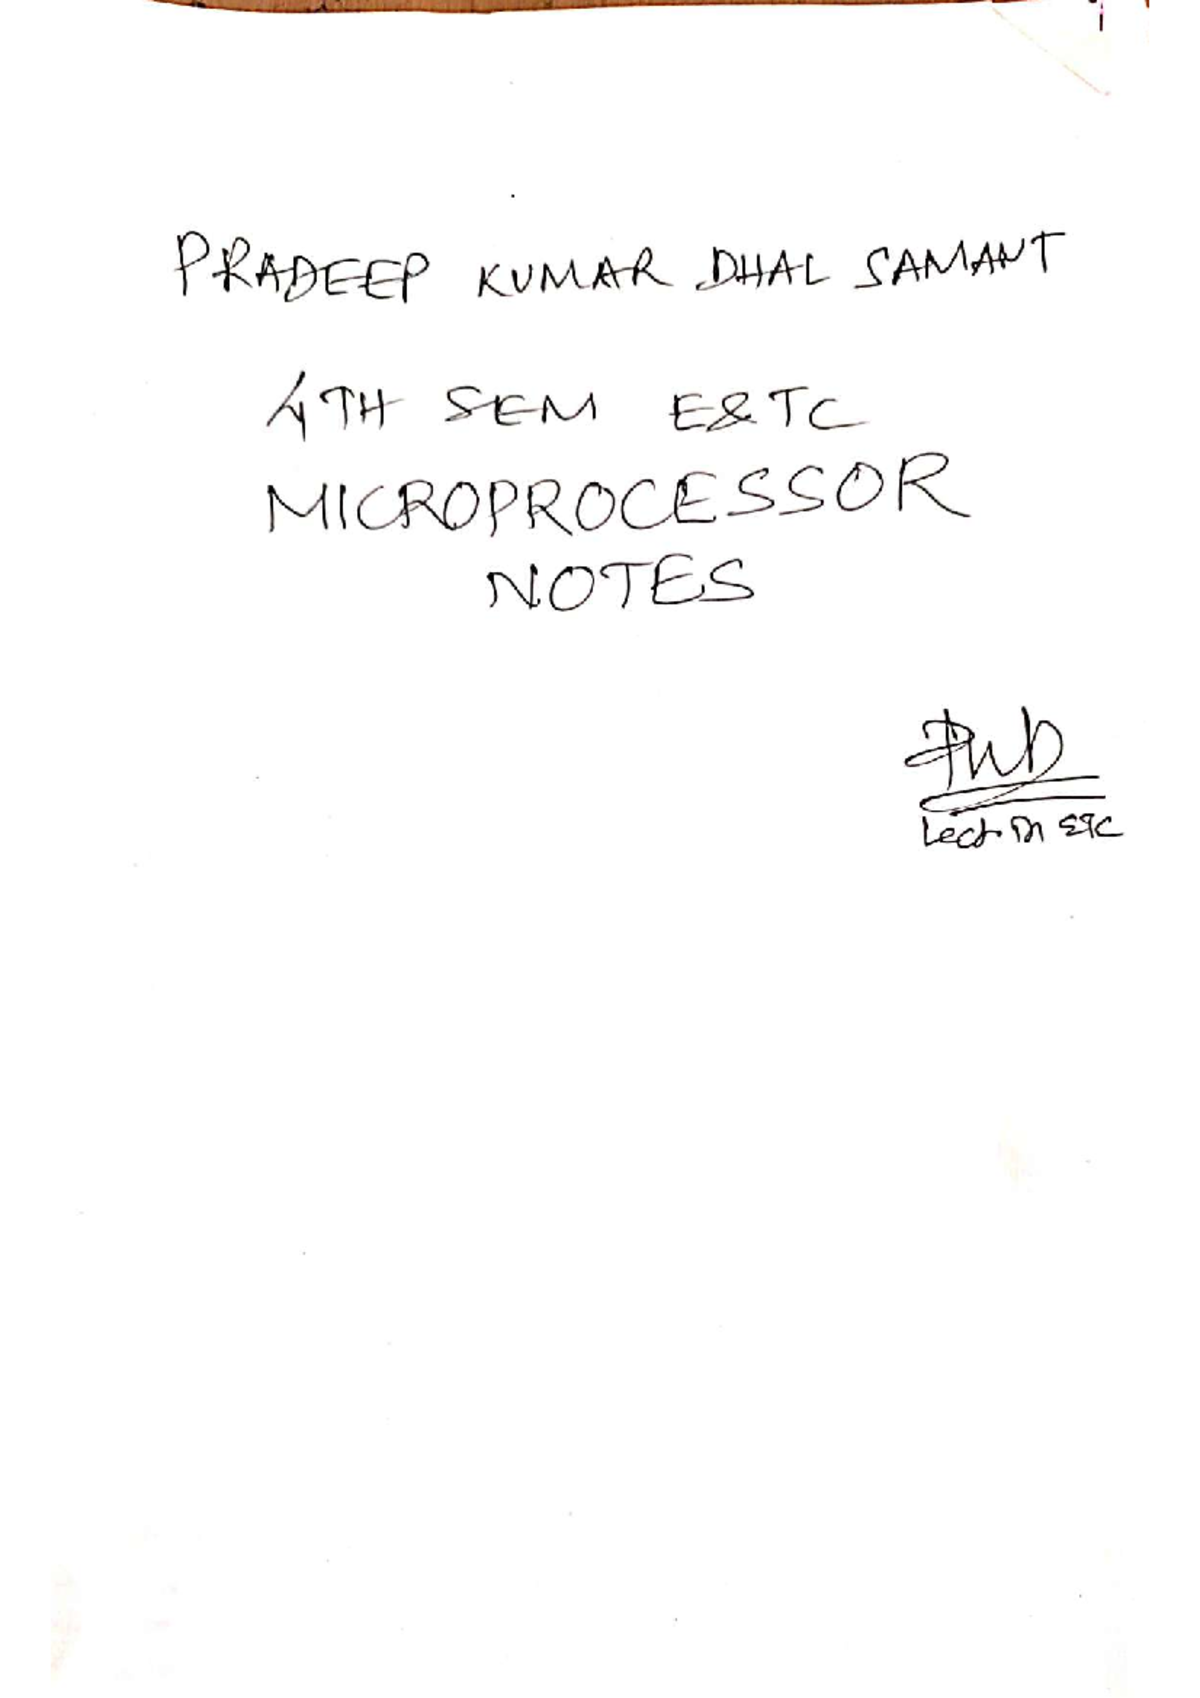 PRADEEP KUMAR DHAL SAMANT
4TH SEM E&TC
MICROPROCESSOR
NOTES
Lect. in ETC